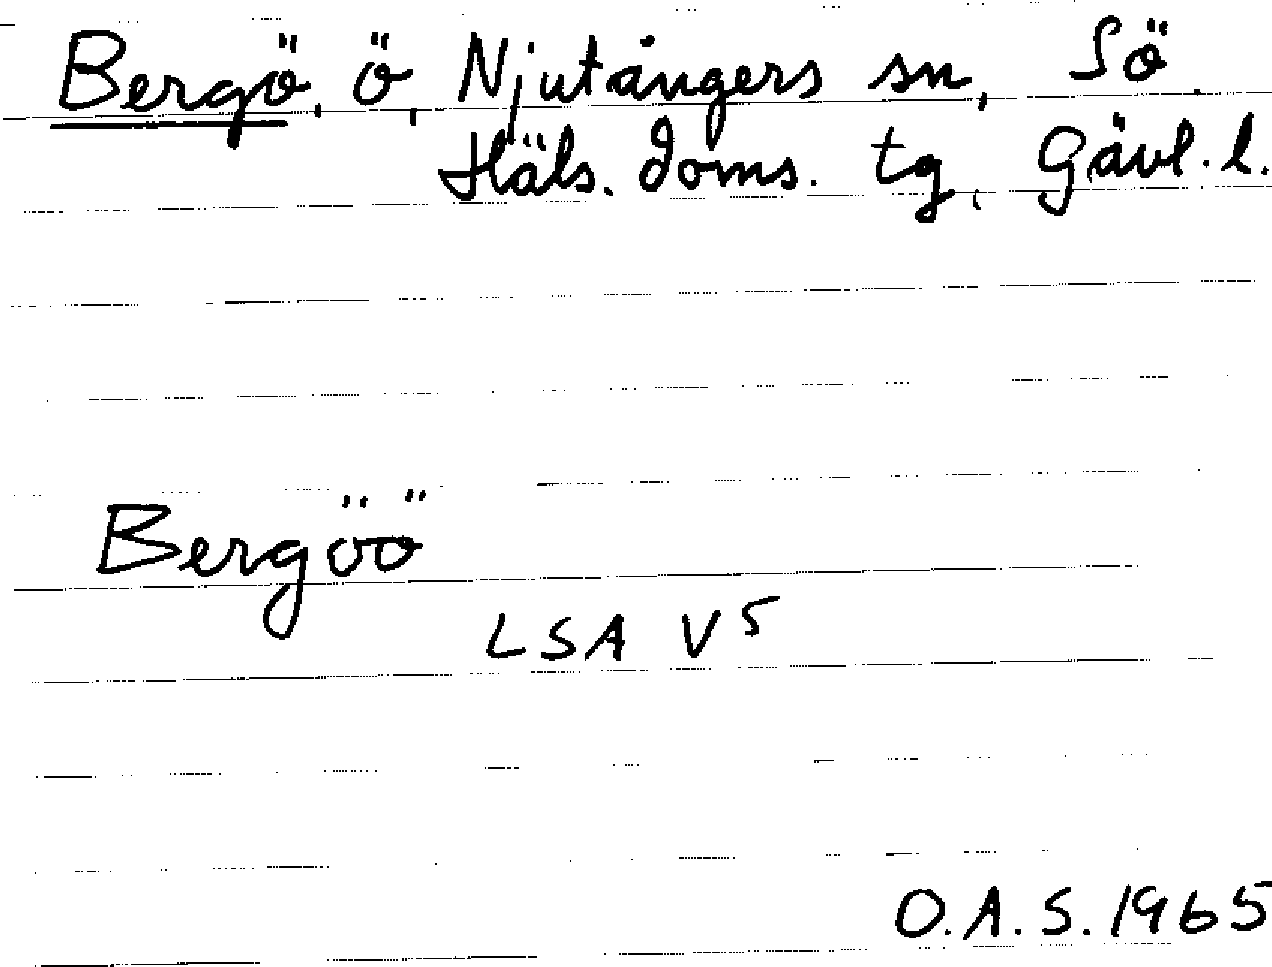 Bergö, ö, Njutångers sn, Sö.
Häls. doms. tg, Gävl. l.
Bergöö
LSA V5
O.A.S. 1965